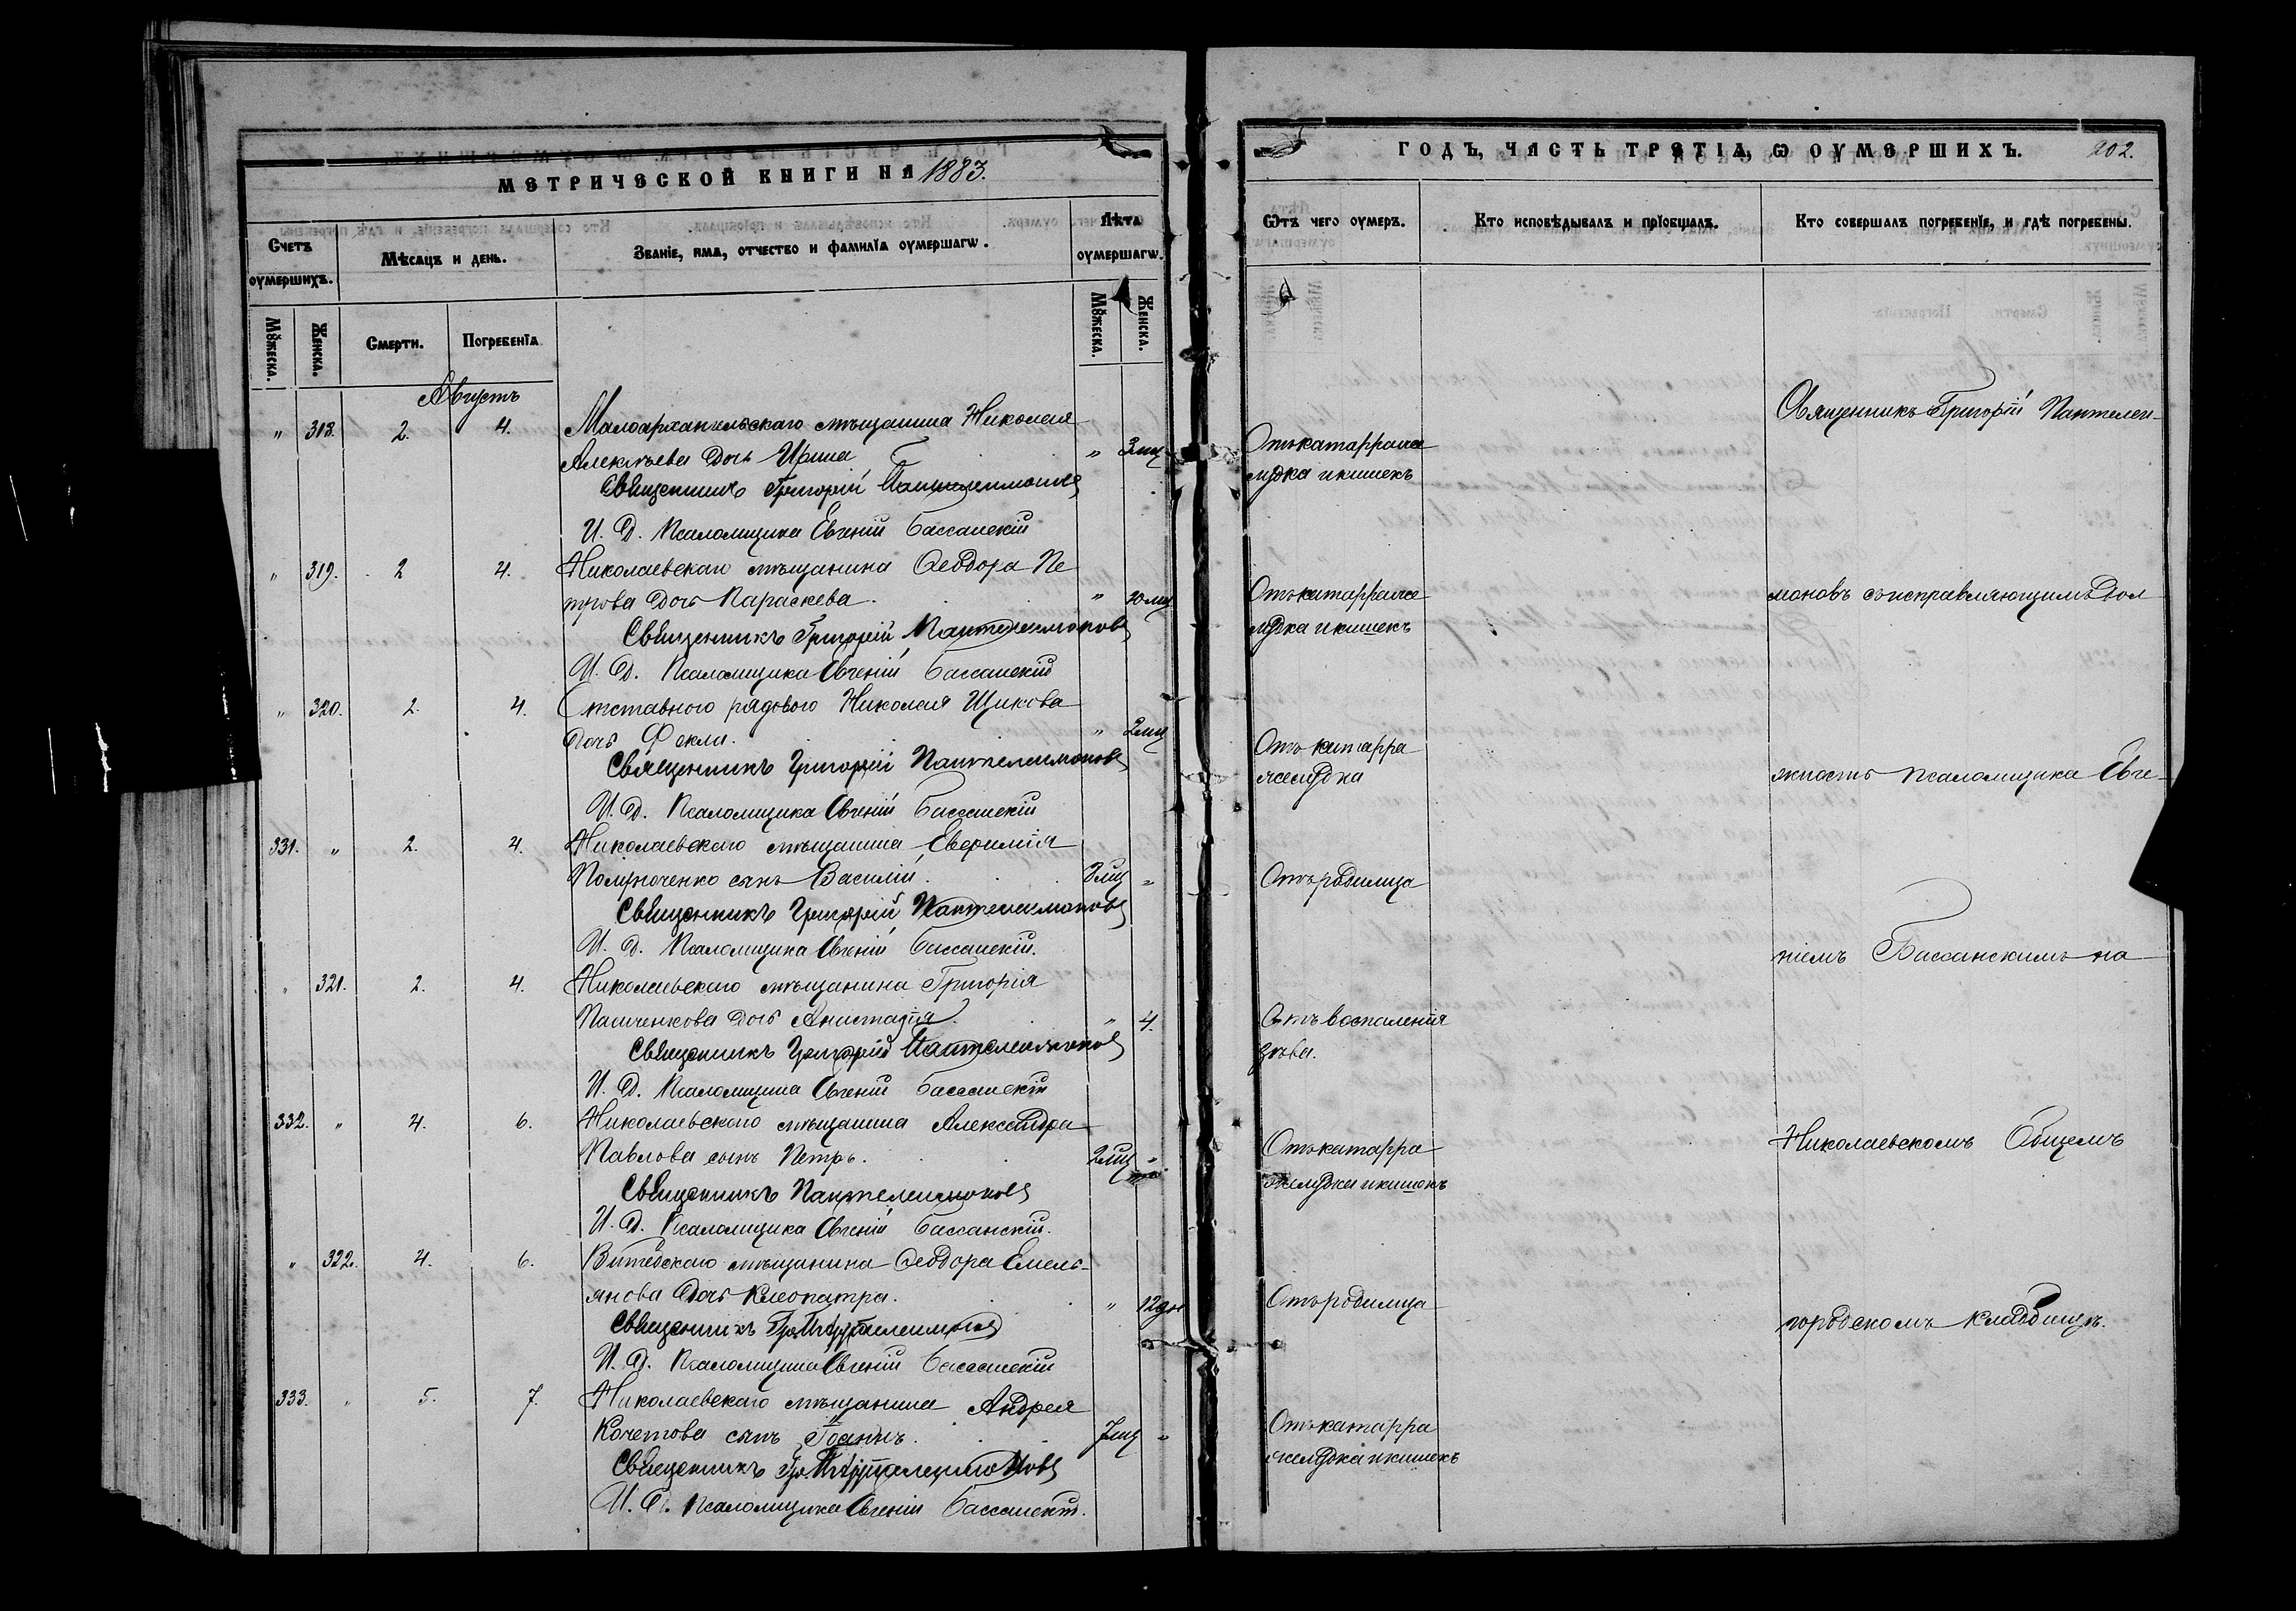 МЕТРИЧЕСКОЙ КНИГИ НА 1883.
Счетъ оумершихъ.
Мѣсяцъ и день.
Званіе, имя, отчество и фамилїа оумершагѡ.
Лѣта оумершагѡ.
Мꙋжеска.
Женска.
Смерти.
Погребенїа
Мꙋжеска.
Женска.
Августъ
" 318. 2. 4. Малоархангельскаго мѣщанина Николая
Алексѣева дочь Ирина " 3 мц
Священникъ Григорій Пантелеимоновъ
И. Д. Псаломщика Евгеній Бассанскій
" 319. 2 4. Николаевскаго мѣщанина Ѳеодора Пе
трова дочь Параскева. " 10 мц
Священникъ Григорій Пантелеимоновъ
И. Д. Псаломщика Евгеній Бассанскій
" 320. 2. 4. Отставного рядового Николая Щикова
дочь Ѳекла. " 2 мц
Священникъ Григорій Пантелеимоновъ
И. Д. Псаломщика Евгеній Бассанскій
331. " 2. 4. Николаевскаго мѣщанина
сынъ Василій. 3 мц "
Священникъ Григорій Пантелеимоновъ
И. Д. Псаломщика Евгеній Бассанскій.
" 321. 2. 4. Николаевскаго мѣщанина Григорія
Пасиченкова дочь Анастасія. " 4.
Священникъ Григорій Пантелеимоновъ
И. Д. Псаломщика Евгеній Бассанскій
332. " 4. 6. Николаевскаго мѣщанина Александра
Павлова сынъ Петръ. 2 мц "
Священникъ Пантелеимоновъ
И. Д. Псаломщика Евгеній Бассанскій.
" 322. 4. 6. Витебскаго мѣщанина Ѳеодора Емель-
янова дочь Клеопатра. " 12 дн
Священникъ Гр. Пантелеимоновъ
И. Д. Псаломщика Евгеній Бассанскій
333. " 5. 7. Николаевскаго мѣщанина Андрея
Кочетова сынъ Іоаннъ. 7 мц "
Священникъ Гр. Пантелеимоновъ
И. Д. Псаломщика Евгеній Бассанскій.
ГОДЪ, ЧАСТЬ ТРЕТІѦ, Ѡ ОУМЕРШИХЪ. 202.
Ѿтъ чего оумеръ.
Кто исповѣдывалъ и прїобщалъ.
Кто совершалъ погребенїе, и гдѣ погребены.
Отъ катарра же
лудка и кишекъ
Отъ катарра же
лудка и кишекъ
Отъ катарра
желудка
Отъ родимца
Отъ воспаленія
зѣва.
Отъ катарра
желудка и кишекъ
Отъ родимца
Отъ катарра
желудка и кишекъ
Священникъ Григорій Пантелеи-
моновъ съ исправляющимъ дол
жность псаломщика Евге-
ніемъ Бассанскимъ на
Николаевскомъ Общемъ
городскомъ кладбищѣ.